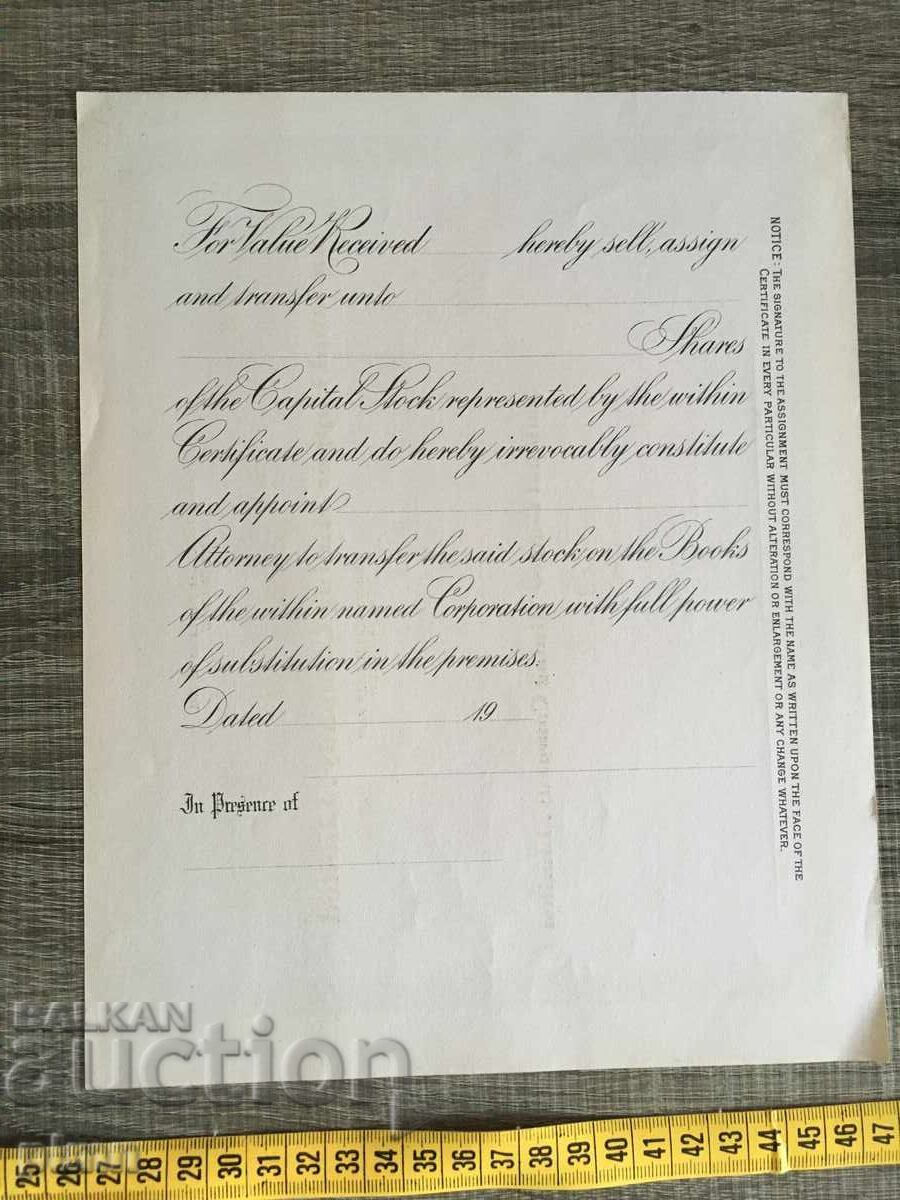 For Value Received hereby sell, assign
and transfer unto
Shares
of the Capital Stock represented by the within
Certificate and do hereby irrevocably constitute
and appoint
Attorney to transfer the said stock on the Books
of the within named Corporation with full power
of substitution in the premises.
Dated 19
In Presence of
NOTICE: THE SIGNATURE TO THE ASSIGNMENT MUST CORRESPOND WITH THE NAME AS WRITTEN UPON THE FACE OF THE
CERTIFICATE IN EVERY PARTICULAR WITHOUT ALTERATION OR ENLARGEMENT OR ANY CHANGE WHATEVER.
BALKAN
auction
25 26 27 28 29 30 31 32 33 34 35 36 37 38 39 40 41 42 43 44 45 46 47